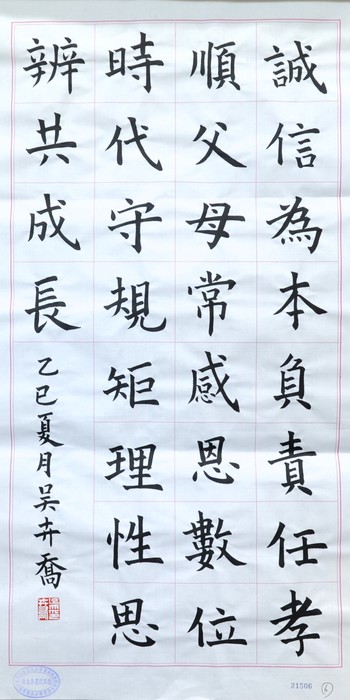 誠信為本負責任孝
順父母常感恩數位
時代守規矩理性思
辨共成長
乙巳夏月吳卉喬
21506
6